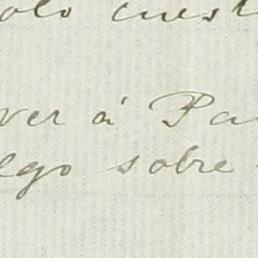 olo cuest
ver á Pa
ego sobre